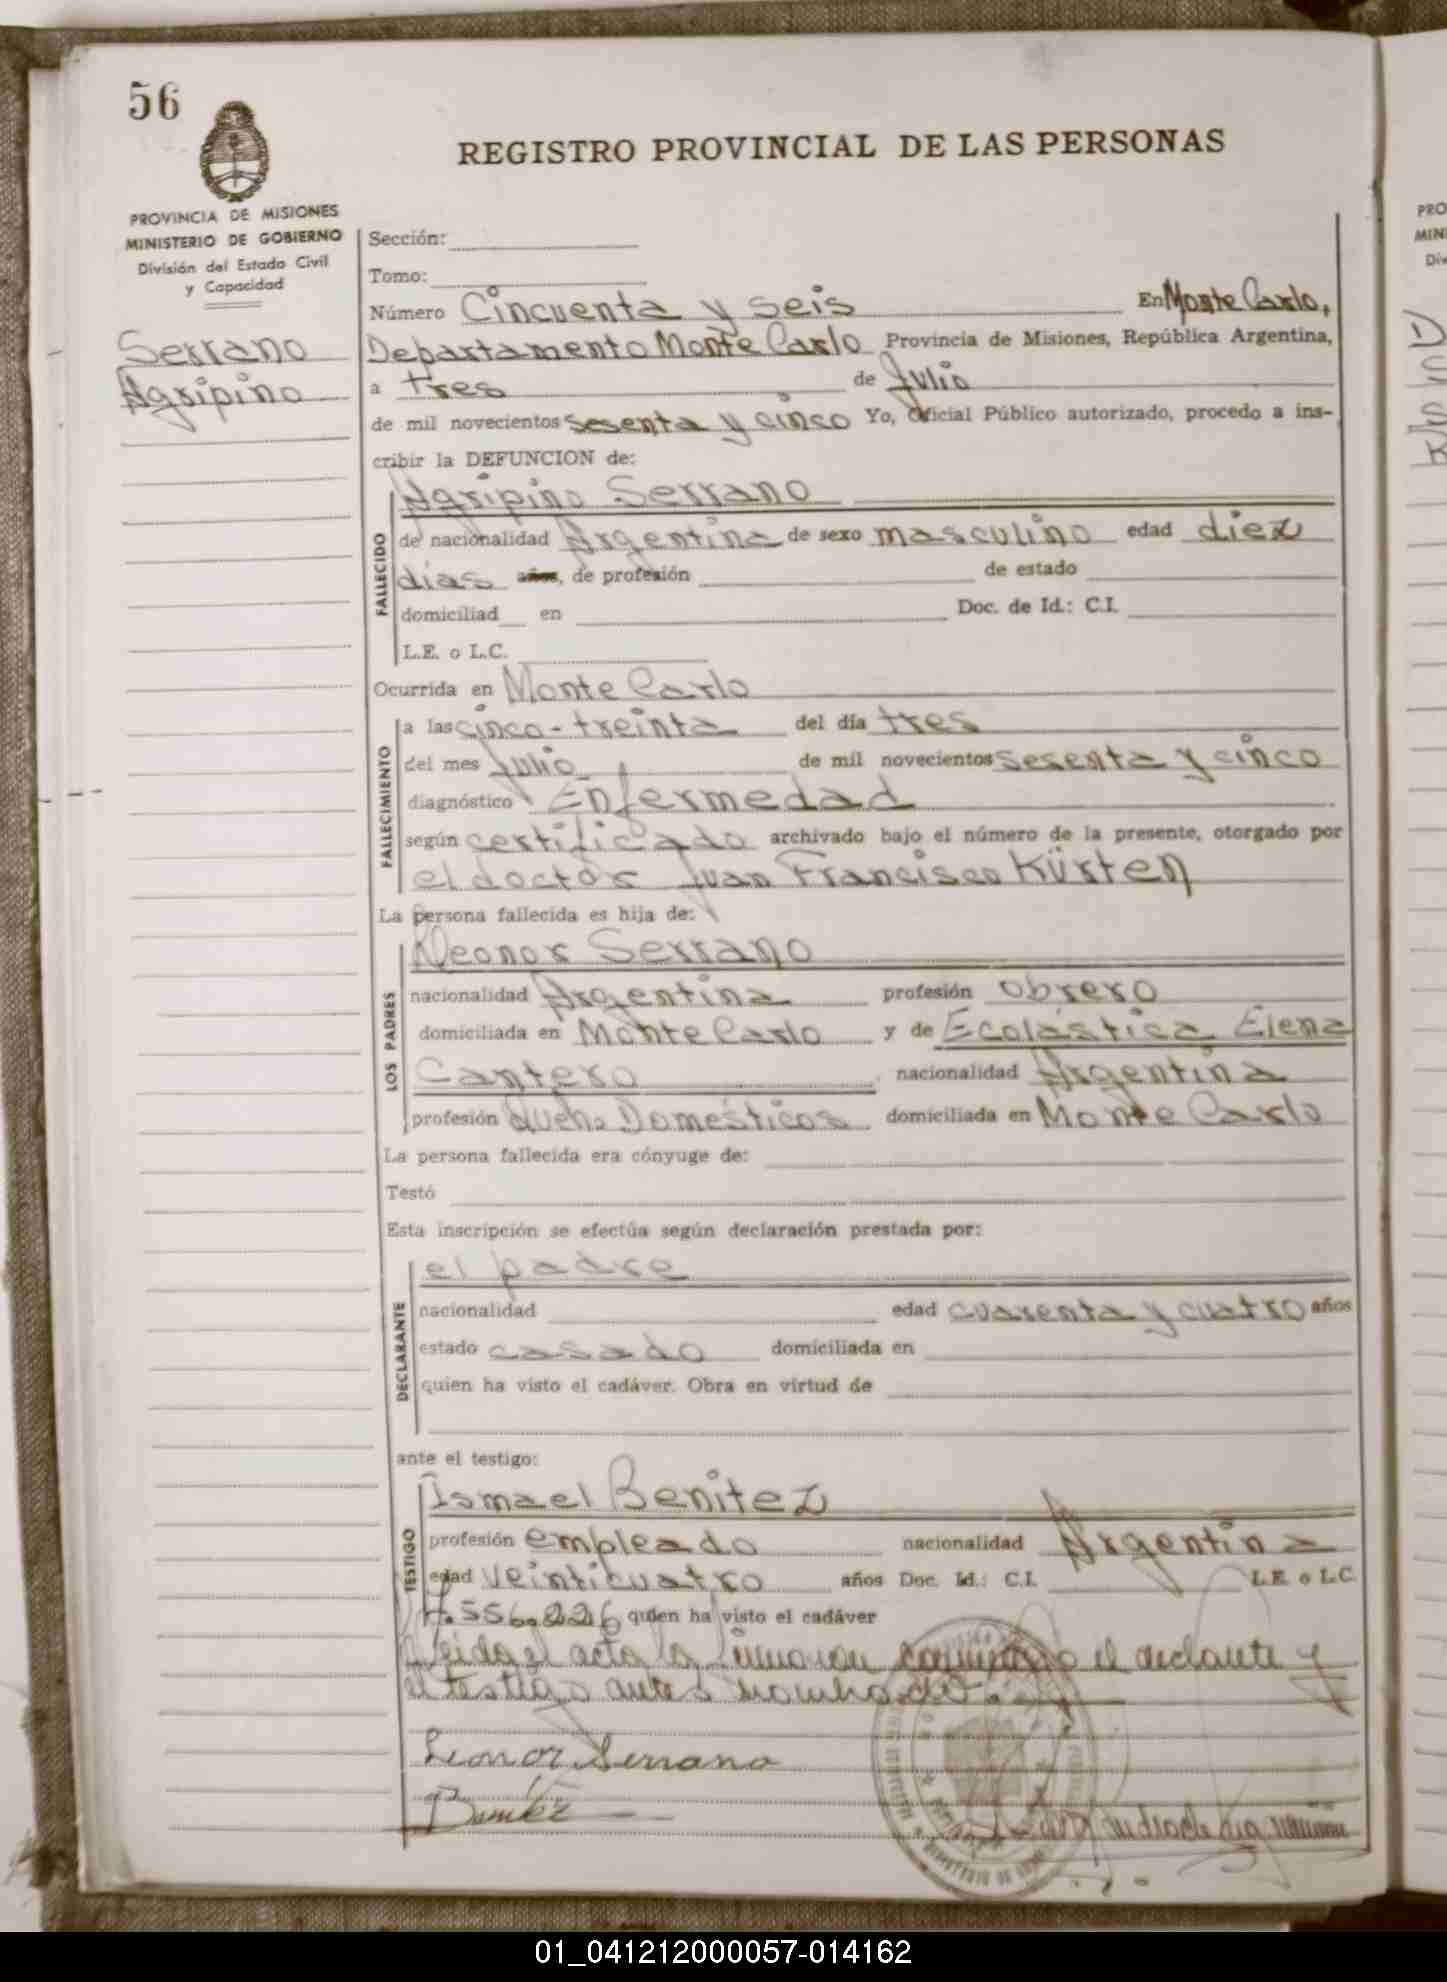 56
REGISTRO PROVINCIAL DE LAS PERSONAS
PROVINCIA DE MISIONES
MINISTERIO DE GOBIERNO
División del Estado Civil
y Capacidad
Serrano
Agripino
Sección:
Tomo:
Número Cincuenta y seis En Monte Carlo,
Departamento Monte Carlo Provincia de Misiones, República Argentina,
a tres de Julio
de mil novecientos sesenta y cinco Yo, Oficial Público autorizado, procedo a ins-
cribir la DEFUNCION de:
FALLECIDO
Agripino Serrano
de nacionalidad Argentina de sexo masculino edad diez
días años, de profesión de estado
domiciliad en Doc. de Id.: C.I.
L.E. o L.C.
Ocurrida en Monte Carlo
FALLECIMIENTO
a las cinco-treinta del día tres
del mes Julio de mil novecientos sesenta y cinco
diagnóstico Enfermedad
según certificado archivado bajo el número de la presente, otorgado por
el doctor Juan Francisco Kürten
La persona fallecida es hija de:
LOS PADRES
Leonor Serrano
nacionalidad Argentina profesión obrero
domiciliada en Monte Carlo y de Ecolástica Elena
Cantero nacionalidad Argentina
profesión Queh. Domésticos domiciliada en Monte Carlo
La persona fallecida era cónyuge de:
Testó
Esta inscripción se efectúa según declaración prestada por:
DECLARANTE
el padre
nacionalidad edad cuarenta y cuatro años
estado casado domiciliada en
quien ha visto el cadáver. Obra en virtud de
ante el testigo:
TESTIGO
Ismael Benitez
profesión empleado nacionalidad Argentina
edad veinticuatro años Doc. Id.: C.I. L.E. o L.C.
7.556.226 quien ha visto el cadáver
Leida el acta la firmaron conmigo el declante y
el testigo antes nombrado.
Leonor Serrano
Benitez
PRO
MINI
Div
01_041212000057-014162